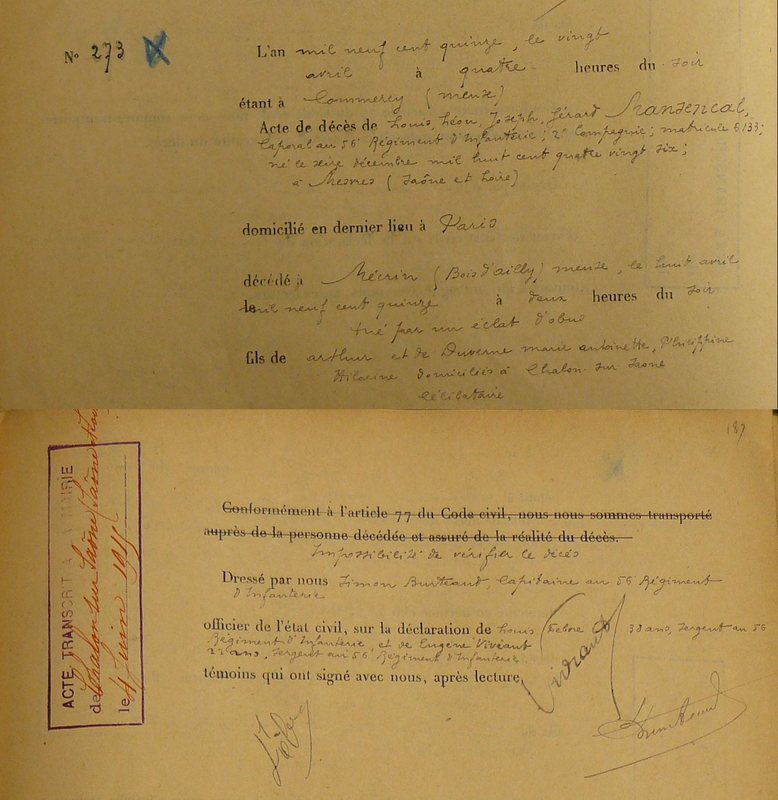 N° 273
L'an mil neuf cent quinze, le vingt
avril à quatre heures du soir
étant à Commercy (Meuse)
Acte de décès de Louis, Léon, Joseph, Gérard Mansencal,
Caporal au 56e Régiment d'Infanterie; 2e Compagnie; matricule 6133;
né le seize décembre mil huit cent quatre vingt six;
à Mesvres (Saône et Loire)
domicilié en dernier lieu à Paris
décédé à Mécrin (Bois d'ailly) meuse, le huit avril
mil neuf cent quinze à deux heures du soir
tué par un éclat d'obus
fils de arthur et de Duverne marie antoinette, Philippine
domiciliés à Chalon-sur-Saone
Célibataire
187
Conformément à l'article 77 du Code civil, nous nous sommes transporté
auprès de la personne décédée et assuré de la réalité du décès.
Impossibilité de vérifier le décès
Dressé par nous Simon Burteaud, Capitaine au 56 Régiment
d'Infanterie
officier de l'état civil, sur la déclaration de Louis 30 ans, Sergent au 56
Régiment d'Infanterie et de Eugène
22 ans, Sergent au 56e Régiment d'Infanterie
témoins qui ont signé avec nous, après lecture
ACTE TRANSCRIT À LA MAIRIE
de Chalon sur Saône (Saône et Loire
le 4 Juin 1915